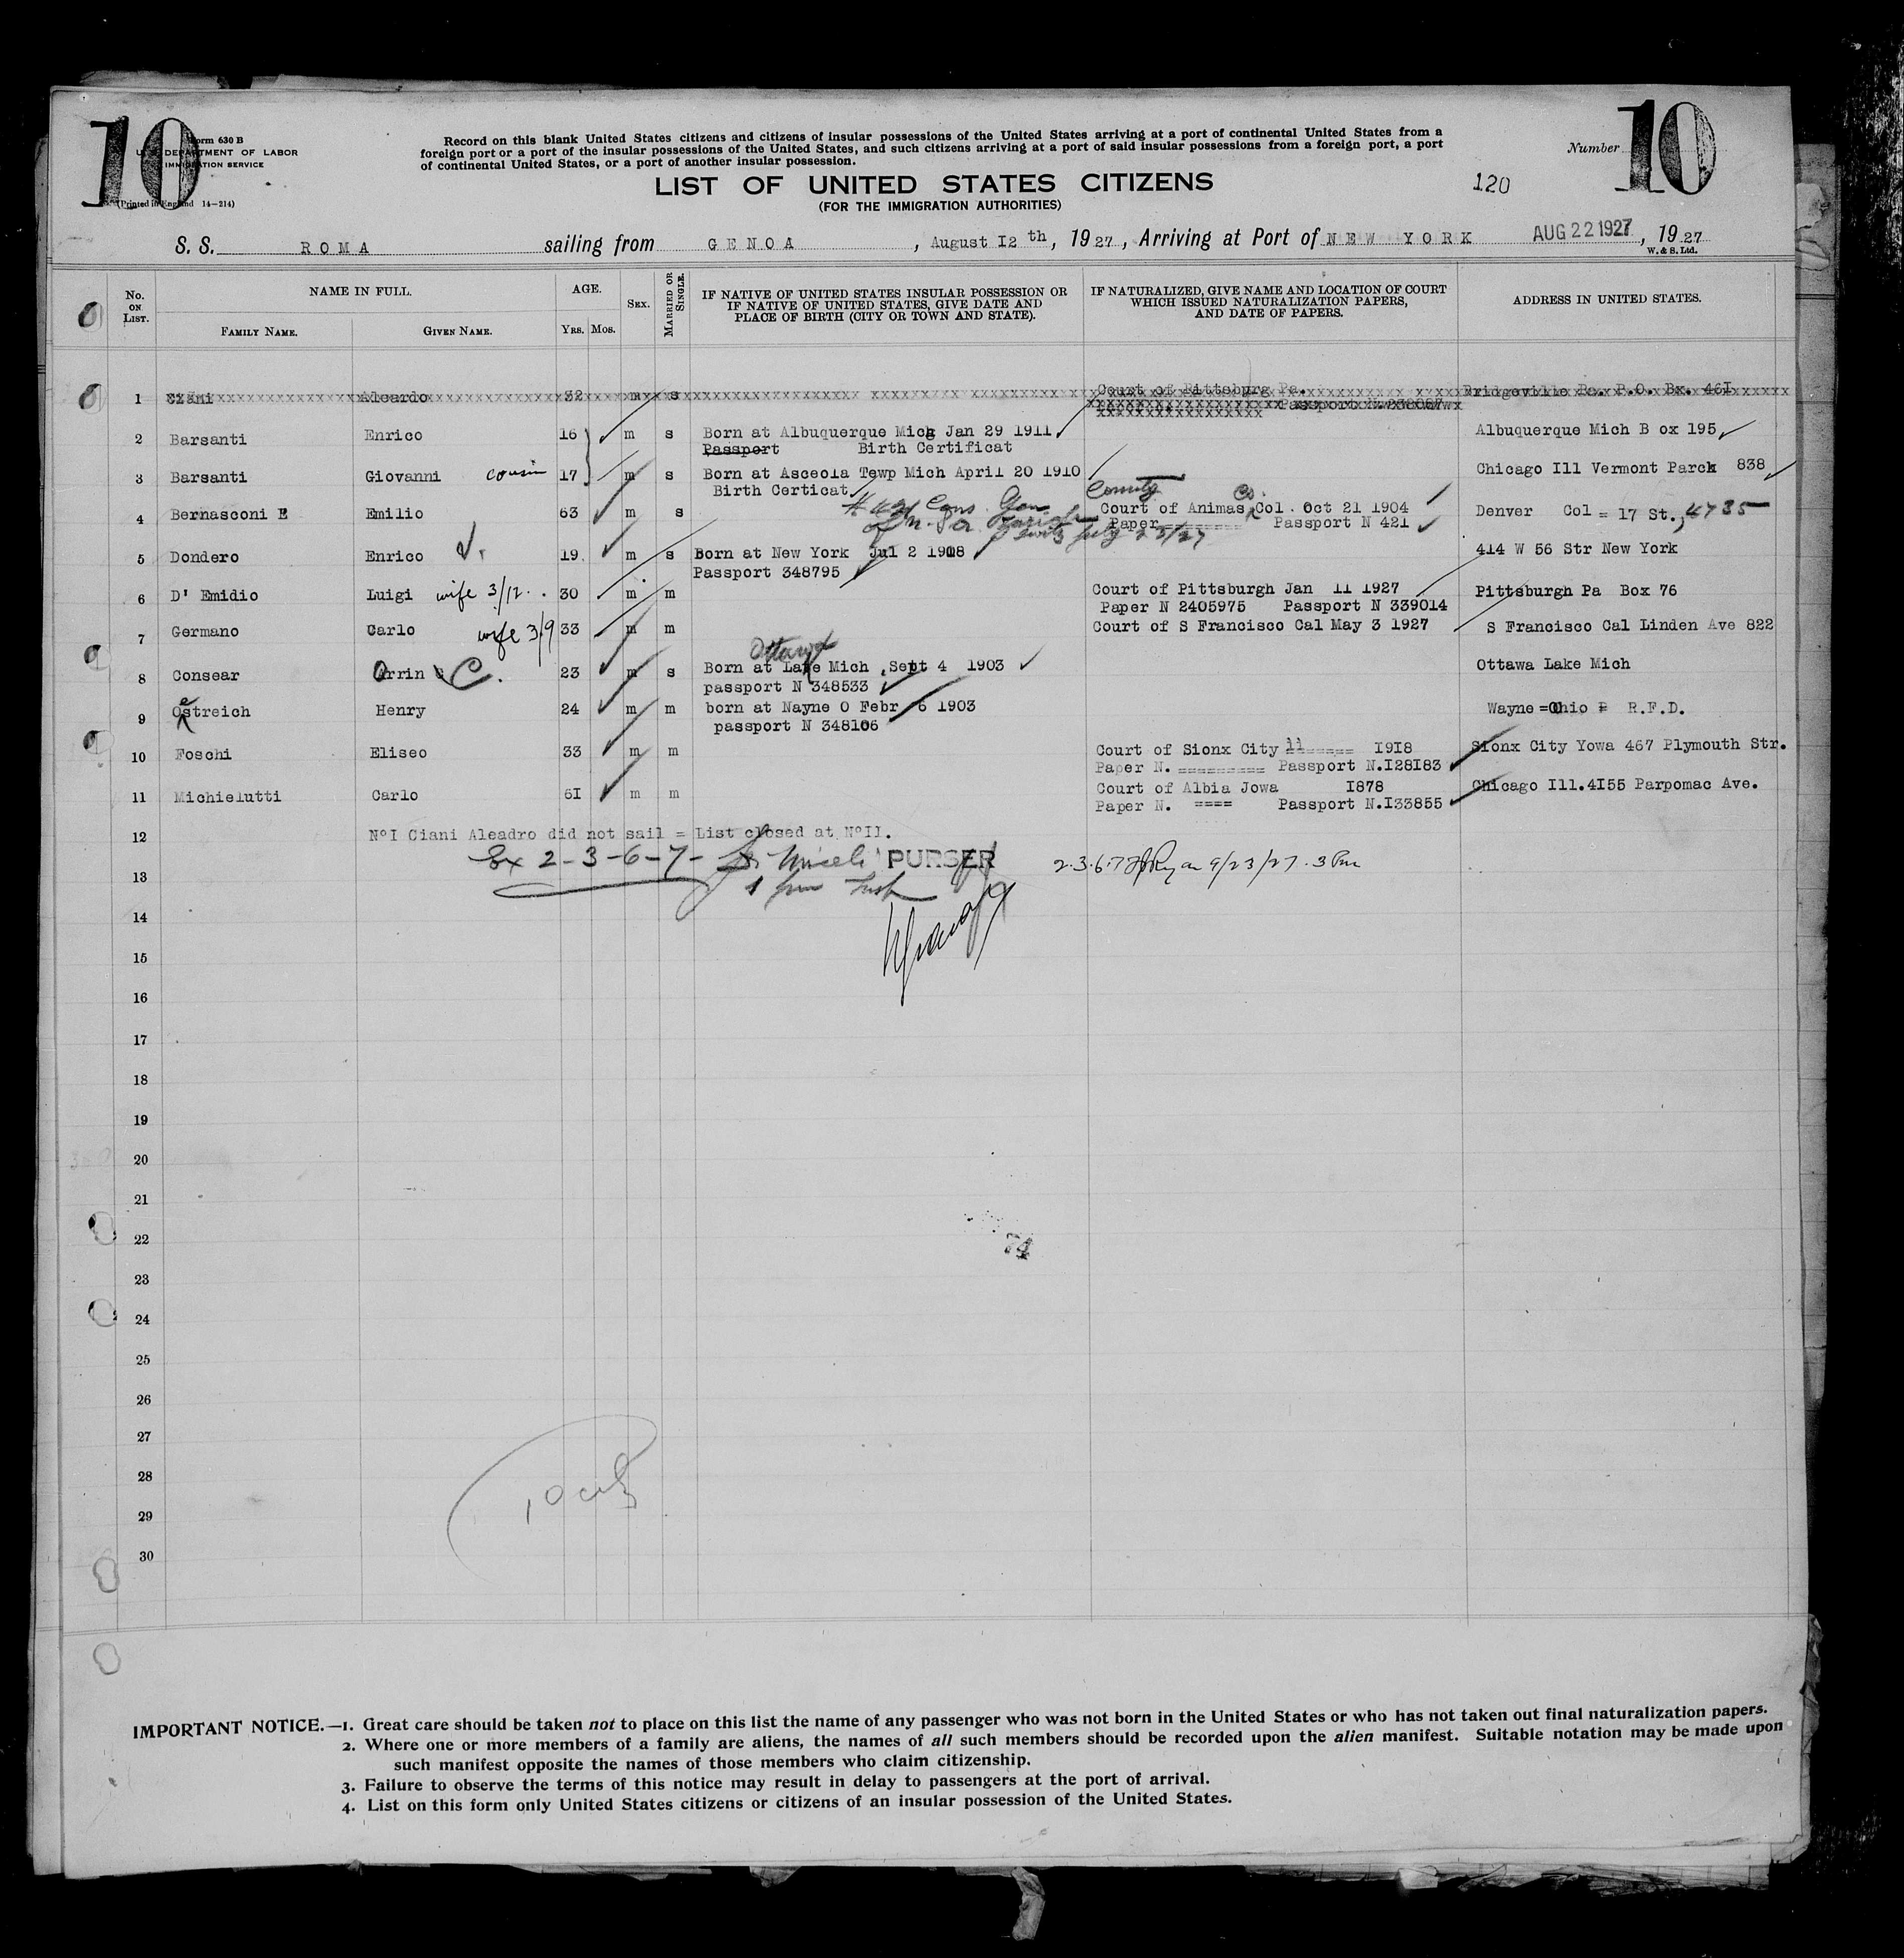 10
Form 630 B
U. S. DEPARTMENT OF LABOR
IMMIGRATION SERVICE
(Printed in England 14—214)
Record on this blank United States citizens and citizens of insular possessions of the United States arriving at a port of continental United States from a
foreign port or a port of the insular possessions of the United States, and such citizens arriving at a port of said insular possessions from a foreign port, a port
of continental United States, or a port of another insular possession.
LIST OF UNITED STATES CITIZENS
(FOR THE IMMIGRATION AUTHORITIES)
120
Number
10
S. S. ROMA sailing from GENOA, August I2 th, 1927, Arriving at Port of NEW YORK AUG 22 1927, 1927
W. & S. Ltd.
No. ON LIST.
NAME IN FULL.
FAMILY NAME.
GIVEN NAME.
AGE.
YRS. MOS.
SEX.
MARRIED OR SINGLE.
IF NATIVE OF UNITED STATES INSULAR POSSESSION OR
IF NATIVE OF UNITED STATES, GIVE DATE AND
PLACE OF BIRTH (CITY OR TOWN AND STATE).
IF NATURALIZED, GIVE NAME AND LOCATION OF COURT
WHICH ISSUED NATURALIZATION PAPERS,
AND DATE OF PAPERS.
ADDRESS IN UNITED STATES.
1 Ciani Aleardo 32 m s Court of Pittsburg Pa. Bridgeville Pa. P.O. Bx. 46I
Passport
2 Barsanti Enrico 16 m s Born at Albuquerque Mich Jan 29 1911 Albuquerque Mich B ox 195
Passport Birth Certificat
3 Barsanti Giovanni cousin 17 m s Born at Asceola Tewp Mich April 20 1910 Chicago Ill Vermont Parck 838
Birth Certicat
County Co.
4 Bernasconi E Emilio 63 m s Court of Animas Col . Oct 21 1904 Denver Col = 17 St., 4735
# 421 Cons. Gen
Paper Passport N 421
July 23/27
5 Dondero Enrico 19. m s Born at New York Jul 2 1908 414 W 56 Str New York
Passport 348795
6 D' Emidio Luigi wife 3/12. 30 m m Court of Pittsburgh Jan 11 1927 Pittsburgh Pa Box 76
Paper N 2405975 Passport N 339014
7 Germano Carlo wife 3/9 33 m m Court of S Francisco Cal May 3 1927 S Francisco Cal Linden Ave 822
Ottawa
8 Consear Orrin C. 23 m s Born at Lake Mich , Sept 4 1903 Ottawa Lake Mich
passport N 348533
9 Oestreich Henry 24 m m born at Nayne O Febr 6 1903 Wayne =Ohio R.F.D.
passport N 348106
10 Foschi Eliseo 33 m m Court of Sionx City 11 ====== I9I8 Sionx City Yowa 467 Plymouth Str.
Paper N. ========= Passport N.I28I83
11 Michielutti Carlo 6I m m Court of Albia Jowa I878 Chicago Ill.4I55 Parpomac Ave.
Paper N. ==== Passport N.I33855
12 N°I Ciani Aleadro did not sail = List closed at N°II.
Ex 2-3-6-7- PURSER 2.3.6.7 JJRyan 9/23/27. 3 Pm
13
14
15
16
17
18
19
20
21
22
74
23
24
25
26
27
28
29
30
IMPORTANT NOTICE.—1. Great care should be taken not to place on this list the name of any passenger who was not born in the United States or who has not taken out final naturalization papers.
2. Where one or more members of a family are aliens, the names of all such members should be recorded upon the alien manifest. Suitable notation may be made upon
such manifest opposite the names of those members who claim citizenship.
3. Failure to observe the terms of this notice may result in delay to passengers at the port of arrival.
4. List on this form only United States citizens or citizens of an insular possession of the United States.